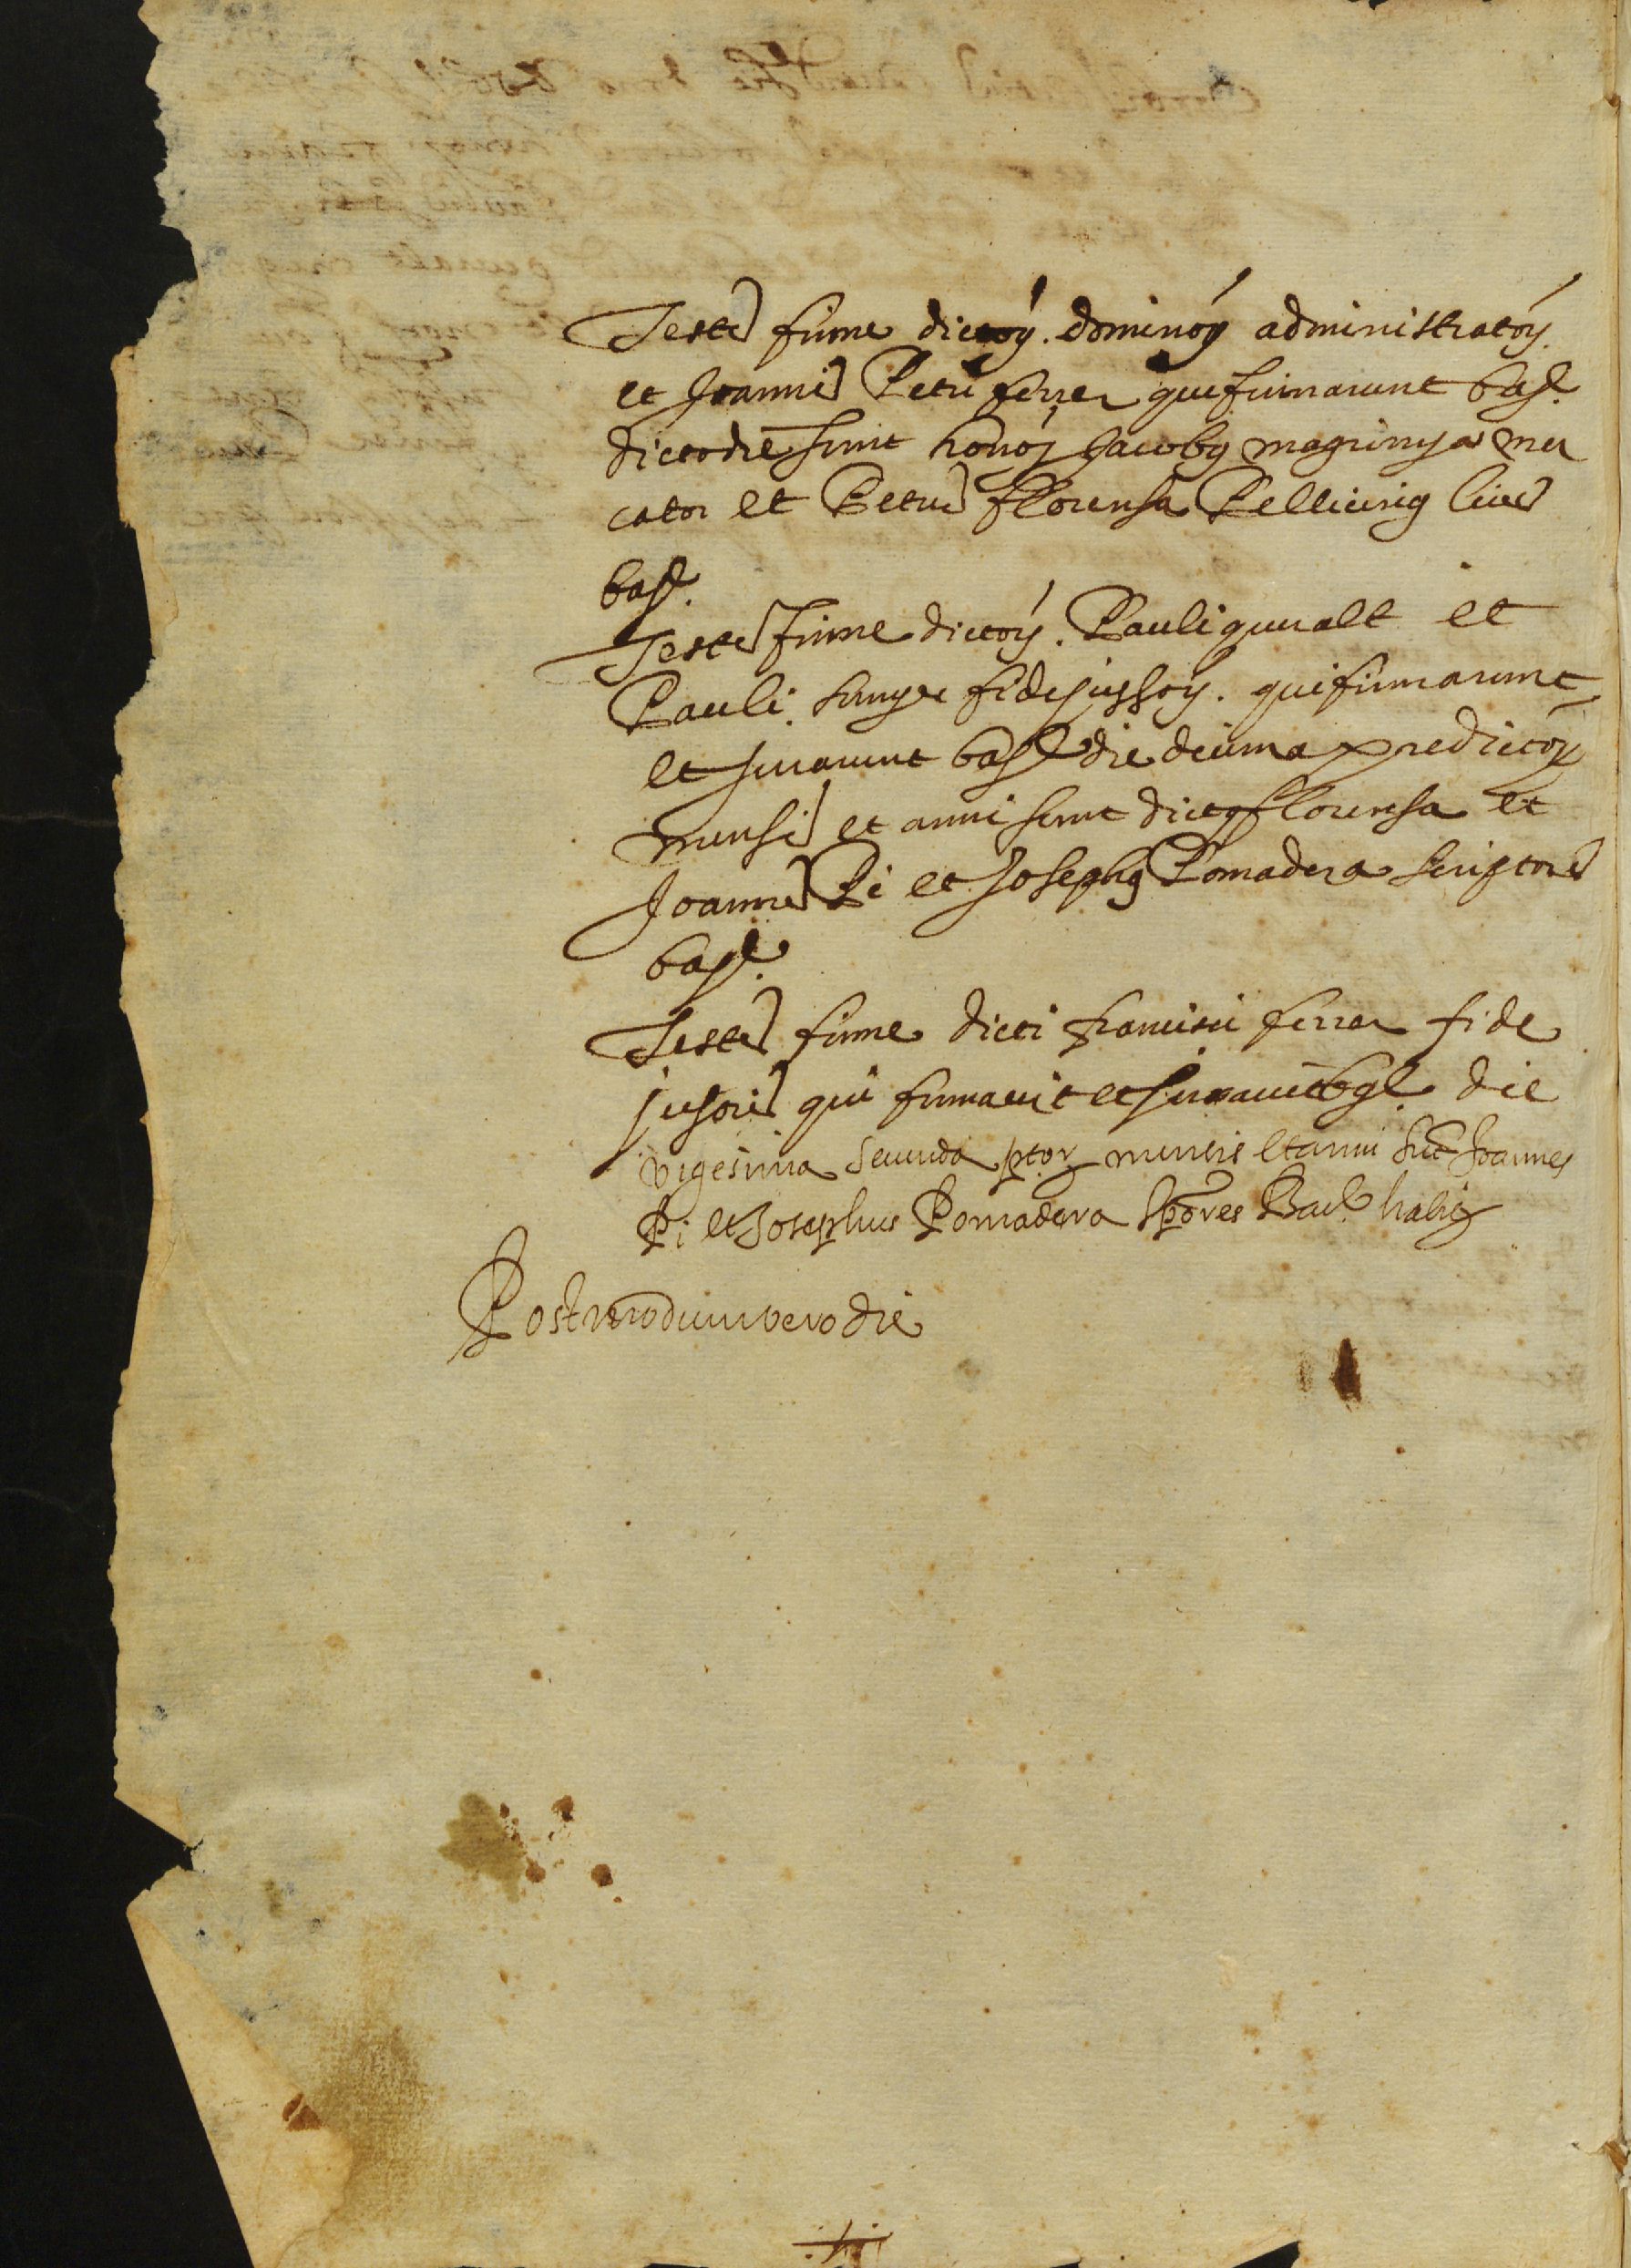 Testes firme dictoꝝ. dominoꝝ administratoꝝ.
et Joannis Petri ferrer qui firmarunt baſꝉ.
dicto die sunt honoꝝ Jacobꝯ magrinya mer
cator et Petrus florensa Pelliceriꝯ cives
baſꝉ.
Testes firme dictoꝝ. Pauli guralt et
Pauli fidejussoꝝ. qui firmarunt
et jurarunt baſꝉ die decima predictoꝝ
mensis et anni sunt dictꝯ florensa et
Joannes Pi et Josephꝯ Pomadera scriptores
baſꝉ.
Testes firme dicti francisci ferrer fide
jusoris qui firmavit et juravit die
vigesima secunda ptoꝝ mensis et anni sut Joannes
Pi et Josephus Pomadera Sp̄ores Bacꝉ habiꝫ
Postmodum vero die